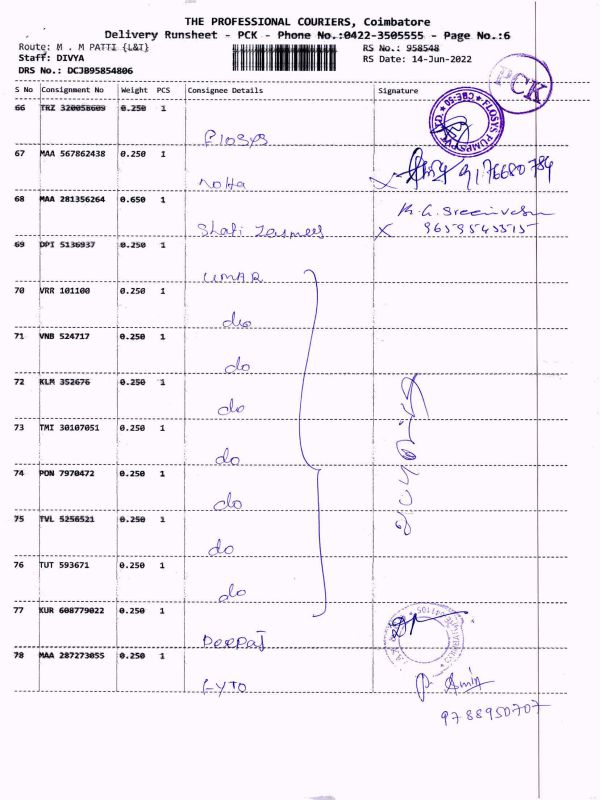 THE PROFESSIONAL COURIERS, Coimbatore
Delivery Runsheet - PCK - Phone No.:0422-3505555 - Page No.:6
Route: M . M PATTI {L&T}
RS No.: 958548
Staff: DIVYA
RS Date: 14-Jun-2022
DRS No.: DCJB95854806
PCK
S No Consignment No Weight PCS Consignee Details Signature
66 TRZ 320058609 0.250 1
Flosys
FLOSYS PUMPS PVT LTD. CBE-50
67 MAA 567862438 0.250 1
Noha
9176680784
68 MAA 281356264 0.650 1
Shafi
K. G. Sreenivasan
9659545515
69 DPI 5136937 0.250 1
UMAR
70 VRR 101100 0.250 1
do
71 VNB 524717 0.250 1
do
72 KLM 352676 0.250 1
do
73 TMI 30107051 0.250 1
do
74 PON 7970472 0.250 1
do
75 TVL 5256521 0.250 1
do
76 TUT 593671 0.250 1
do
77 KUR 608779022 0.250 1
Deepas
78 MAA 287273055 0.250 1
Gyto
P. Amin
9788950707